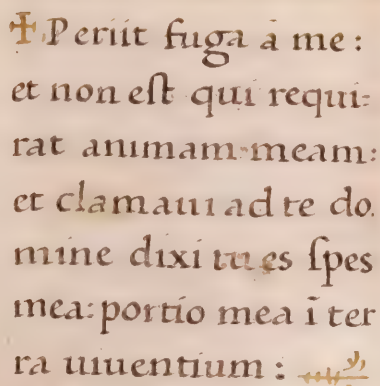 ✝ Periit fuga à me :
et non eſt qui requi:
rat animam meam:
et clamaui ad te do.
mine dixi tu es ſpes
mea: portio mea ī ter
ra uiuentium :